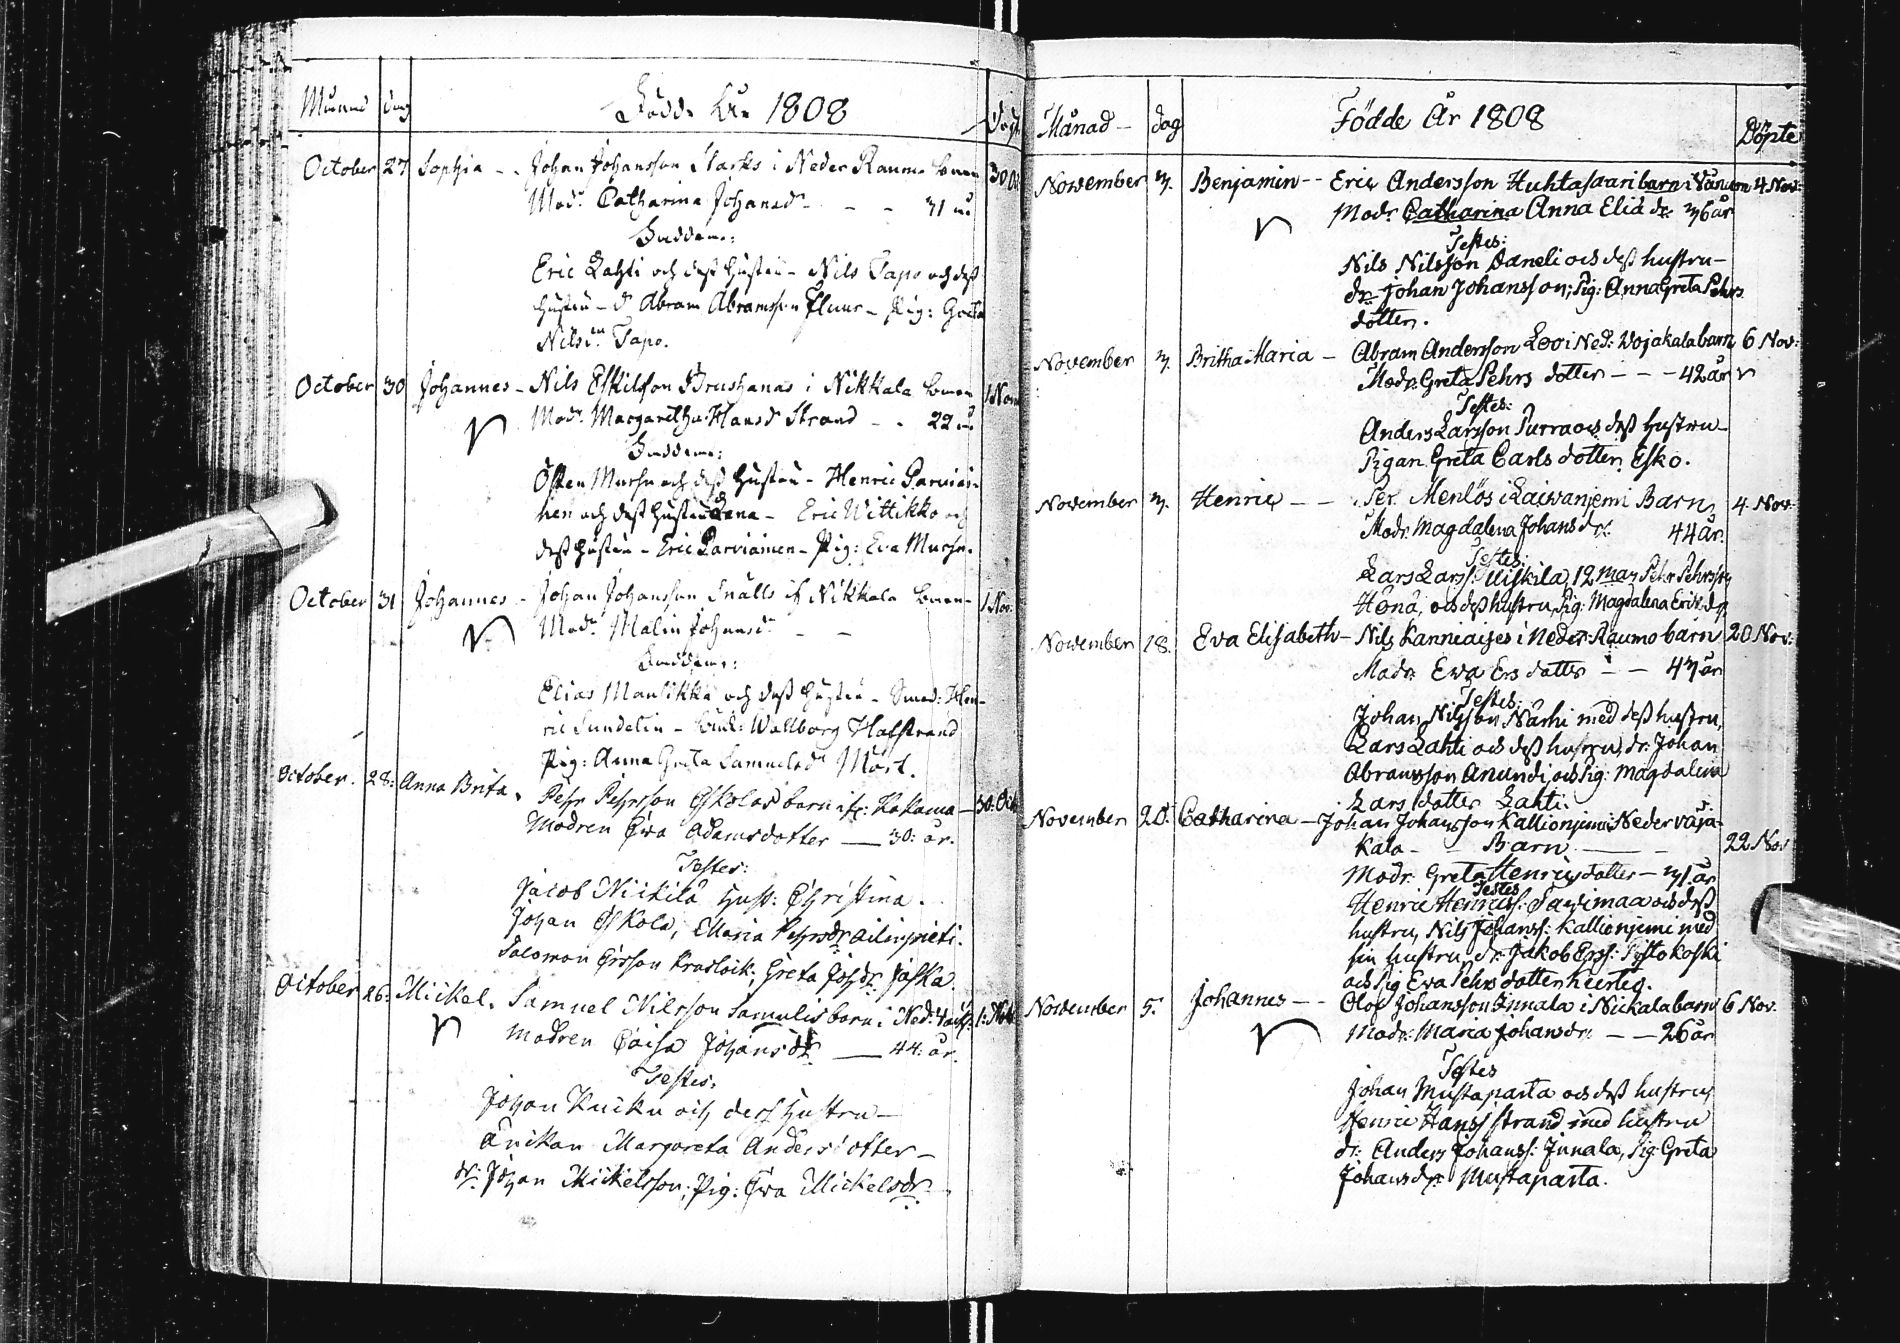 Månad dag Födde År 1808 Döpt
October 27 Sophia - - Johan Johansson Starks i Neder Raumo barn 30 Oct
Modr. Catharina Johansdr - - - 31 år
Faddrar:
Eric Lahti och dess hustru - Nils Tapo och dess
hustru - d. Abram Abramsson - Pig: Greta
Nilsdr. Tapo.
October 30 Johannes - Nils Eskilsson Brushanas i Nikkala barn 1 Nov
Modr. Margaretha Hansdr Strand - - 22 år
Faddrar:
Östen Mursu och dess hustru - Henric Parviai-
nen och dess hustru Lena - Eric Wittikko och
dess hustru - Eric Parviainen - Pig: Eva Mursu.
October 31 Johannes - Johan Johansson Snälls if Nikkala barn - 1 Nov:
Modr. Malin Johansdr - -
Faddrar:
Elias Mansikka och dess hustru - Smed: Hen-
ric Lundelin - Wallborg Hafstrand
Pig: Anna Greta Samuelsdr Mört.
October. 28: Anna Brita. Pehr Pehrsson Eskolas barn ifr: Kakama - 30: Oct
Modren Eva Adamsdotter — 30: år.
Testes:
Jacob Nickilä Hust: Christina.
Johan Eskola, Maria Pehrsdr Ailinpieti.
Salomon Ersson, Greta Johsdr Jaska.
October 26: Mickel. Samuel Nilsson Samulis barn i Ned: 1: Nov
Modren Caisa Johansdr — 44: år.
Testes:
Johan Kuiku och dess hustru -
Änkan Margareta Andersdotter -
dr: Johan Mickelsson; Pig: Eva Mickelsdr.
Månad - dag Födde År 1808 Döpte
November 3. Benjamin - - Eric Andersson Huhtasaari barn i 4 Nov:
Modr. Catharina Anna Eliæ dr. 36 år
Testes:
Nils Nilsson Daneli och dess hustru -
dr. Johan Johansson; Pig: Anna Greta Pehrs
dotter.
November 3. Britha Maria - Abram Andersson Loo i Ned: Wojakala barn 6 Nov:
Modr: Greta Pehrs dotter - - - 42 år
Testes:
Anders Larsson Purra och dess hustru -
Pigan Greta Carls dotter Esko.
November 3. Henric - - Per Menlös i Laiwanjemi Barn 4 Nov:
Modr. Magdalena Johans dr: 44 år.
Testes:
Lars Larss: Uiskila, 12 man Pehr Pehrsson
Hönä, och dess hustru, Pig: Magdalena Erics dr
November 18. Eva Elisabeth - Nils Kanniaises i Neder Raumo barn 20 Nov:
Modr: Ewa Ers dotter - - 43 år
Testes:
Johan Nilsson Närhi med dess hustru,
Lars Lahti och dess hustru, dr: Johan
Abramsson Anundi, och Pig: Magdalena
Lars dotter Lahti.
November 20. Catharina - Johan Johansson Kallionjemi i Neder Vaja-
kala - Barn — - 22 Nov
Modr: Greta Henrics dotter - 31 år
Testes
Henric Henricss: och dess
hustru, Nils Johanss: Kallionjemi med
sin hustru, dr: Jakob Erss: Pystokoski
och Pig Eva Pehrs dotter
November 5. Johannes - - Olof Johansson Innala i Nickala barn 6 Nov.
Modr: Maria Johans dr: - - 26 år
Testes
Johan Mustaparta och dess hustru,
Henric Hanss Strand med hustru
dr: Anders Johanss: Innala, Pig: Greta
Johans dr: Mustaparta.